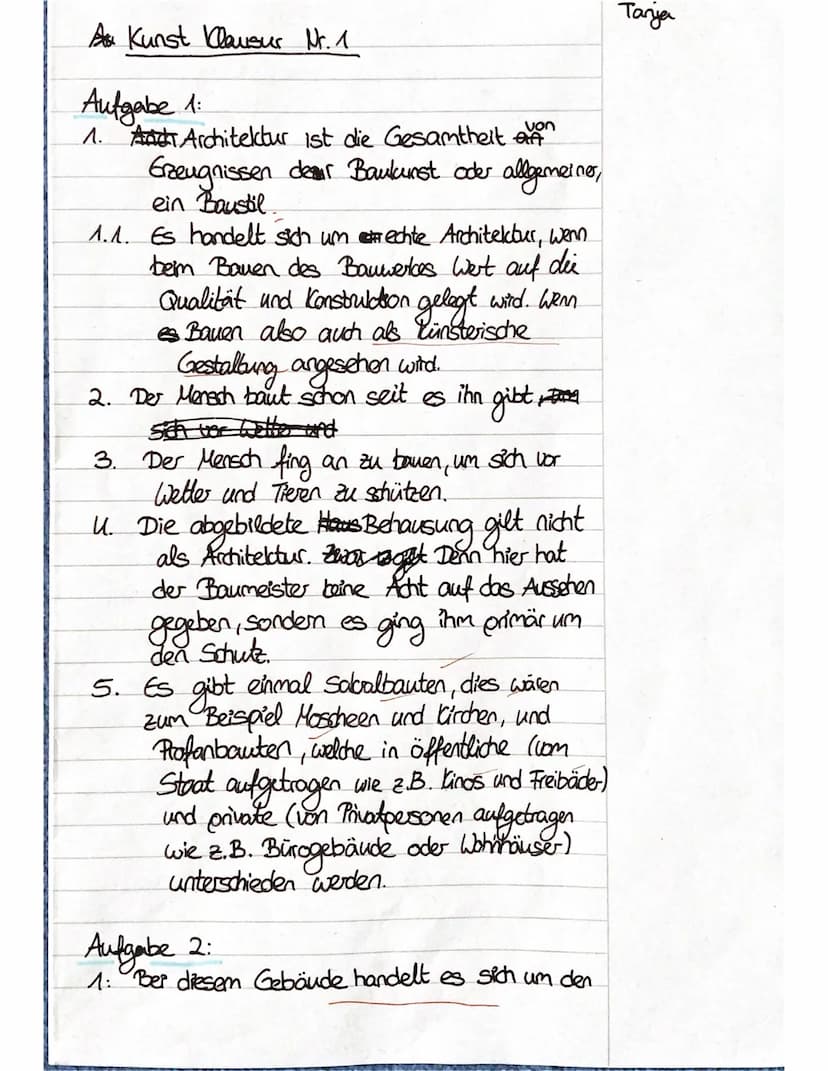 Tanja
Kunst Klausur Nr. 1
Aufgabe 1:
1. Architektur ist die Gesamtheit von
Erzeugnissen der Baukunst oder allgemeiner,
ein Baustil.
1.1. Es handelt sich um echte Architektur, wenn
beim Bauen des Bauwerkes Wert auf die
Qualität und Konstruktion gelegt wird. Wenn
Bauen also auch als künsterische
Gestaltung angesehen wird.
2. Der Mensch baut schon seit es ihn gibt,
sich vor Wetter und
3. Der Mensch fing an zu bauen, um sich vor
Wetter und Tieren zu schützen.
4. Die abgebildete Behausung gilt nicht
als Architektur. Denn hier hat
der Baumeister keine Acht auf das Aussehen
gegeben, sondern es ging ihm primär um
den Schutz.
5. Es gibt einmal Sakralbauten, dies wären
zum Beispiel Moscheen und Kirchen, und
Profanbauten, welche in öffentliche (vom
Staat aufgetragen wie z.B. Kinos und Freibäder)
und private (von Privatpersonen aufgetragen
wie z.B. Bürogebäude oder Wohnhäuser)
unterschieden werden.
Aufgabe 2:
1: Bei diesem Gebäude handelt es sich um den